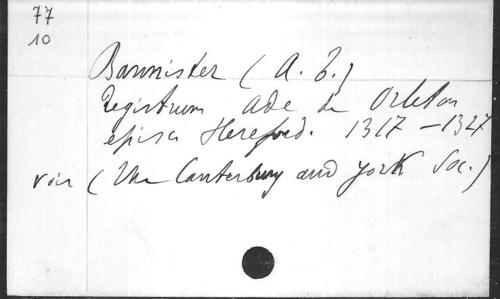 77
10
Bannister (A. T.)
Registrum Ade de Orleton
episc. Hereford. 1317 - 1327
voir (The Canterbury and York Soc.)